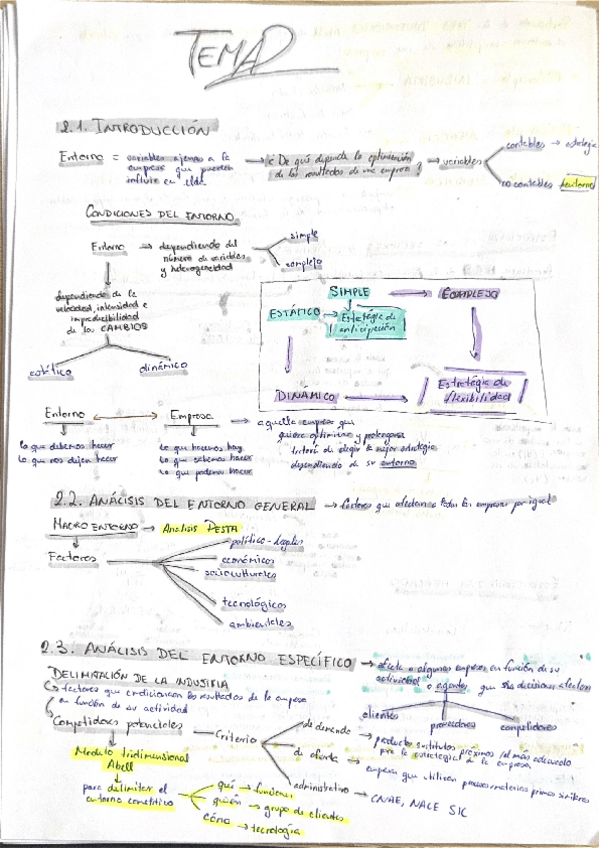 TEMA 2
2.1. INTRODUCCIÓN
Entorno = variables ajenas a la
empresa que pueden
influir en ella
→ ¿De qué depende la optimización
de los resultados de una empresa?
→ variables
contables → estrategia
no contables → entorno
CONDICIONES DEL ENTORNO
Entorno → dependiendo del
número de variables
y heterogeneidad
simple
complejo
dependiendo de la
velocidad, intensidad e
impredecibilidad
de los CAMBIOS
estático
dinámico
SIMPLE → COMPLEJO
ESTÁTICO → Estrategia de
anticipación
DINÁMICO → Estrategia de
flexibilidad
Entorno ↔ Empresa → aquella empresa que
quiere optimizar y prolongarse
tratará de elegir la mejor estrategia
dependiendo de su entorno
lo que debemos hacer
lo que nos dejen hacer
lo que hacemos hoy
lo que sabemos hacer
lo que podemos hacer
2.2. ANÁLISIS DEL ENTORNO GENERAL → factores que afectan a todas las empresas por igual
MACROENTORNO → Análisis PESTA
Factores
político-legales
económicos
socioculturales
tecnológicos
ambientales
2.3. ANÁLISIS DEL ENTORNO ESPECÍFICO → afecta a algunas empresas en función de su
actividad o agentes, que sus decisiones afectan
clientes
proveedores
competidores
DELIMITACIÓN DE LA INDUSTRIA
↳ factores que condicionan los resultados de la empresa
en función de su actividad
Competidores potenciales → Criterio
de demanda → productos sustitutos próximos / el más adecuado
para la estrategia de la empresa
de oferta → empresas que utilizan procesos/materias primas similares
administrativo → CNAE, NACE SIC
Modelo tridimensional
Abell
para delimitar el
entorno competitivo
qué → funciones
quién → grupo de clientes
cómo → tecnología